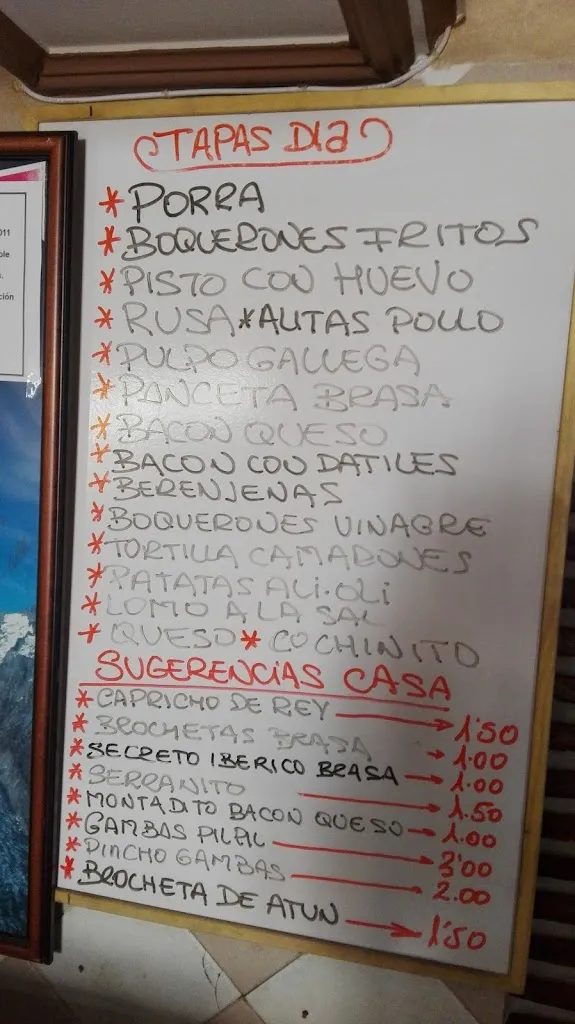 TAPAS DIA
* PORRA
* BOQUERONES FRITOS
* PISTO CON HUEVO
* RUSA * ALITAS POLLO
* PULPO GALLEGA
* PANCETA BRASA
* BACON QUESO
* BACON CON DATILES
* BERENJENAS
* BOQUERONES VINAGRE
* TORTILLA CAMARONES
* PATATAS ALI.OLI
* LOMO A LA SAL
* QUESO * COCHINITO
SUGERENCIAS CASA
* CAPRICHO DE REY → 1'50
* BROCHETAS BRASA → 1.00
* SECRETO IBERICO BRASA → 1.00
* SERRANITO → 1.50
* MONTADITO BACON QUESO → 1.00
* GAMBAS PILPIL → 3'00
* PINCHO GAMBAS → 2.00
* BROCHETA DE ATUN → 1'50
011
ción